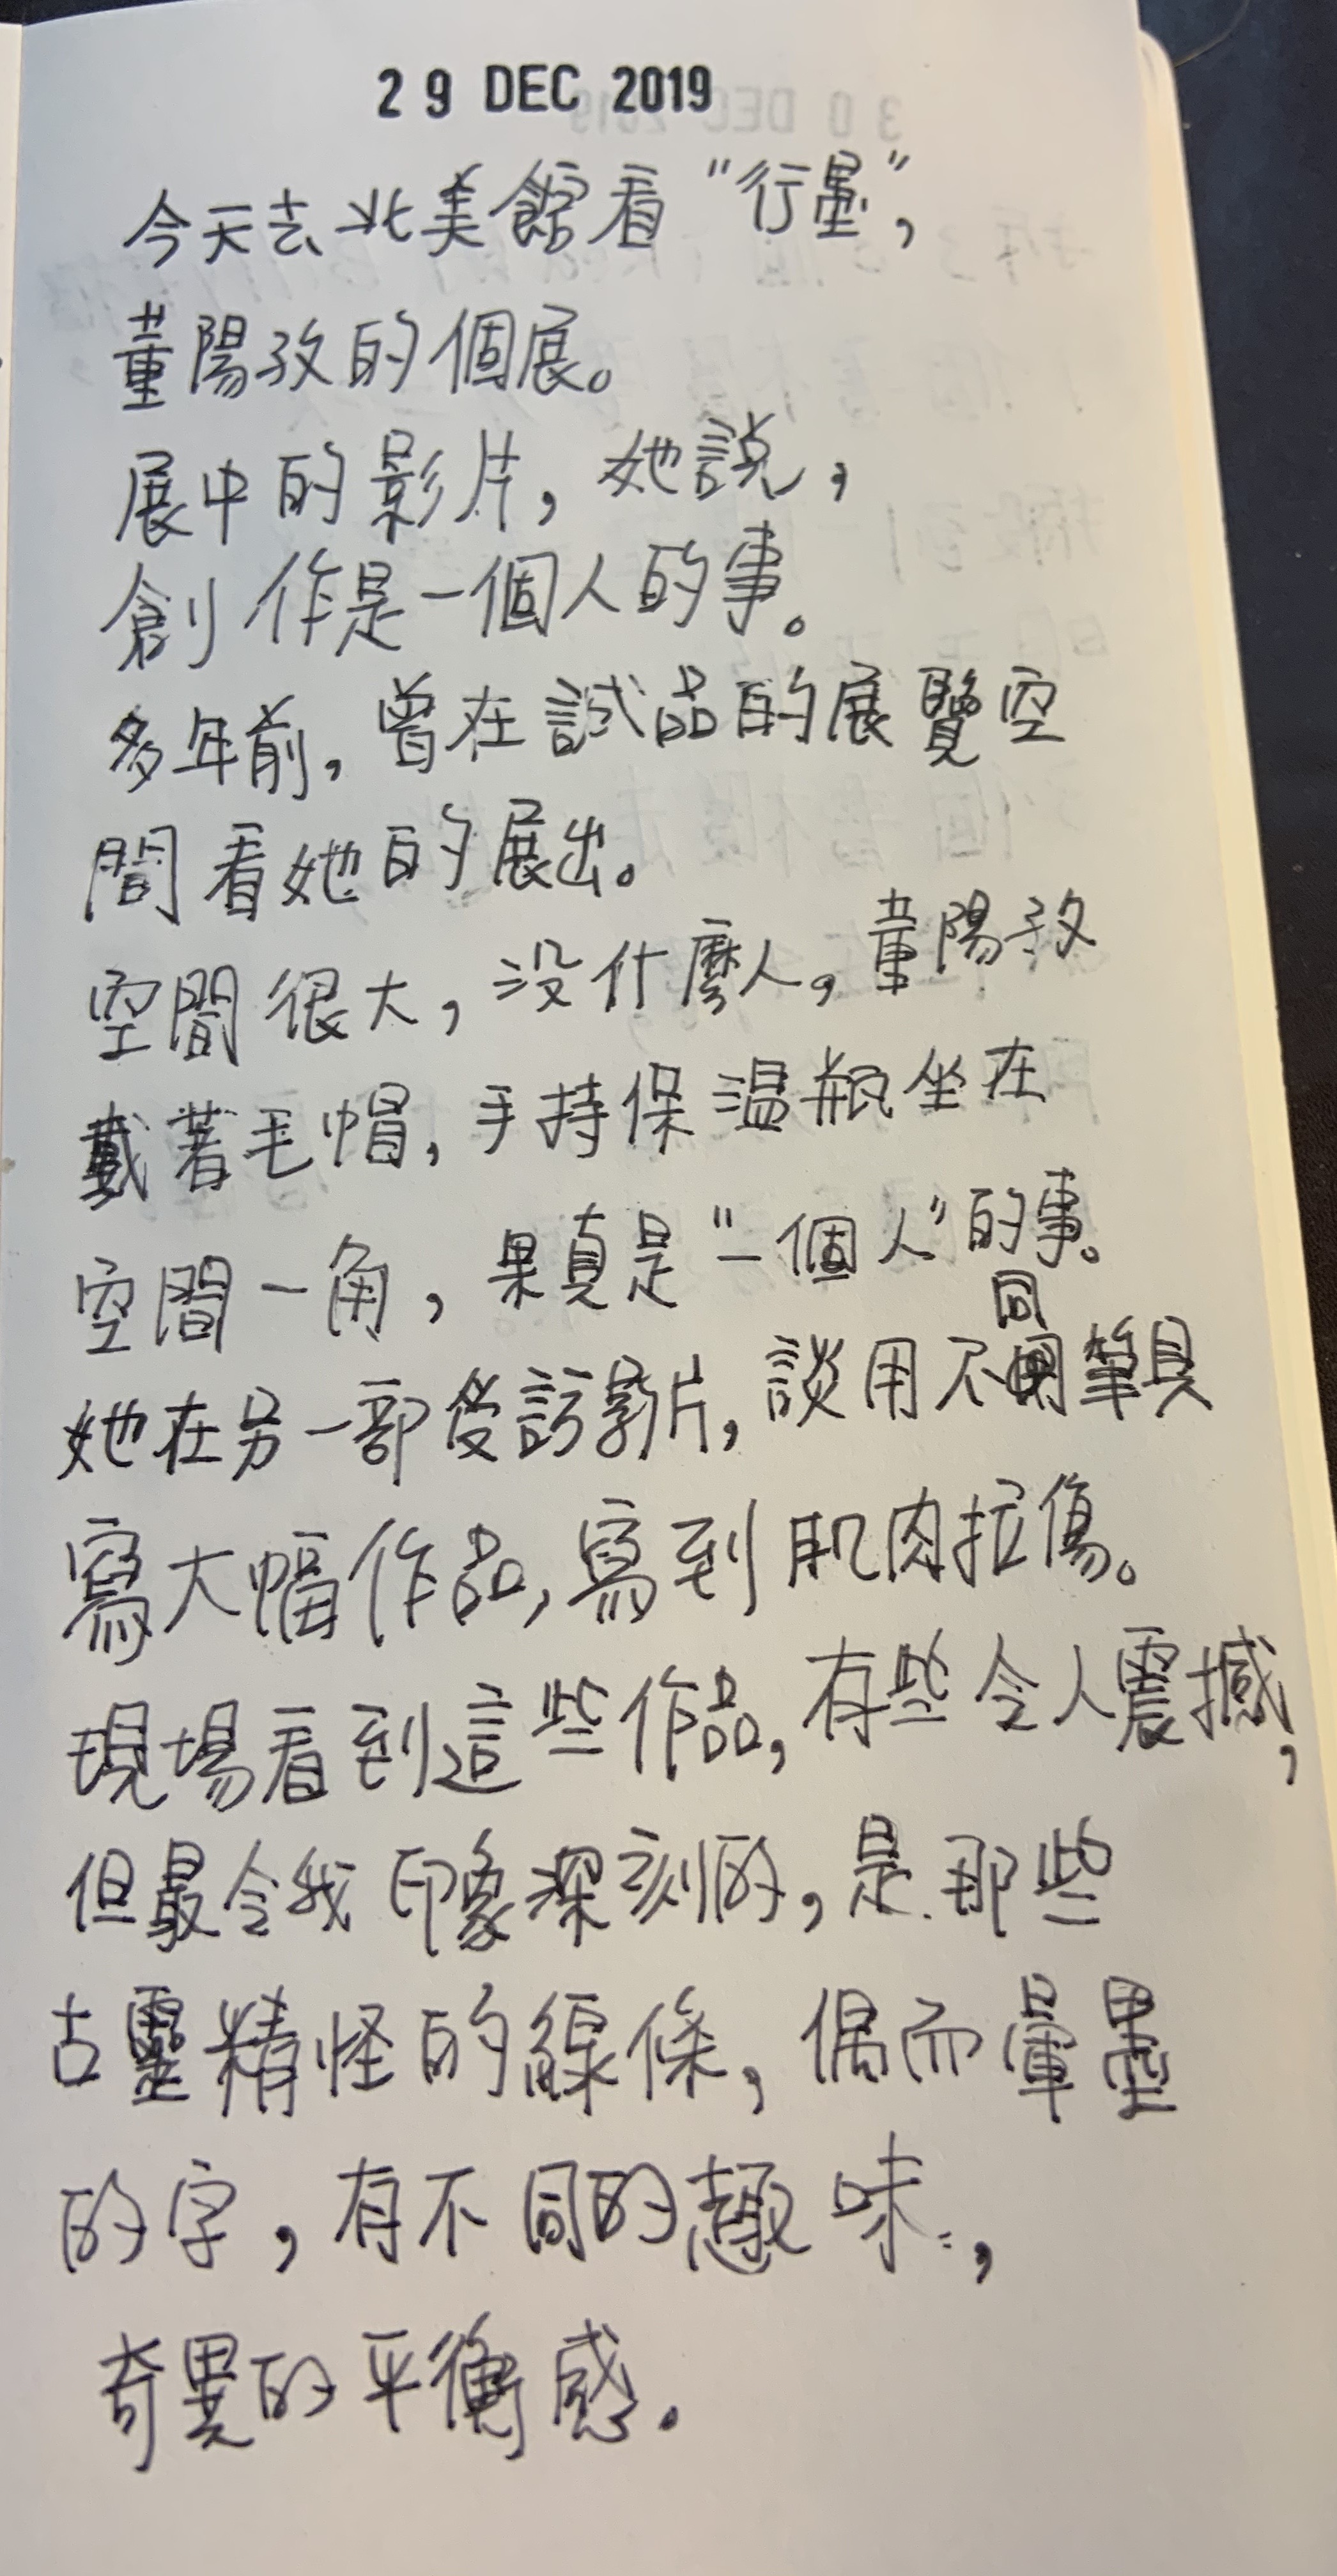 29 DEC 2019
今天去北美館看“行墨”,
董陽孜的個展。
展中的影片,她說,
創作是一個人的事。
多年前,曾在誠品的展覽空
間看她的展出。
空間很大,沒什麼人。董陽孜
戴著毛帽,手持保溫瓶坐在
空間一角,果真是“一個人”的事。
她在另一部受訪影片,談用不同筆具
寫大幅作品,寫到肌肉拉傷。
現場看到這些作品,有些令人震撼,
但最令我印象深刻的,是那些
古靈精怪的線條,偶而暈墨
的字,有不同的趣味,
奇異的平衡感。